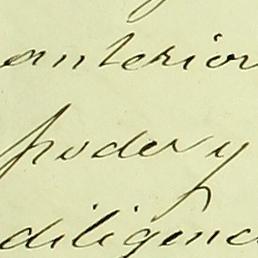 anterior
poder y
diligenc